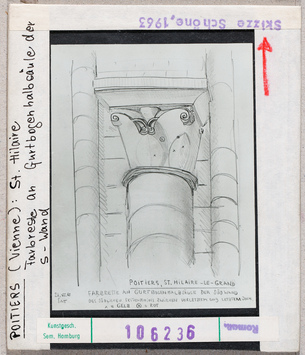 POITIERS (Vienne): St. Hilaire
Farbreste an Gurtbogenhalbsäule der
S-Wand
Skizze Schöne, 1963
POITIERS, ST. HILAIRE-LE-GRAND
FARBRESTE AN GURTBOGENHALBSÄULE DER SÜDWAND
Kunstgesch.
Sem. Hamburg
106236
Roman